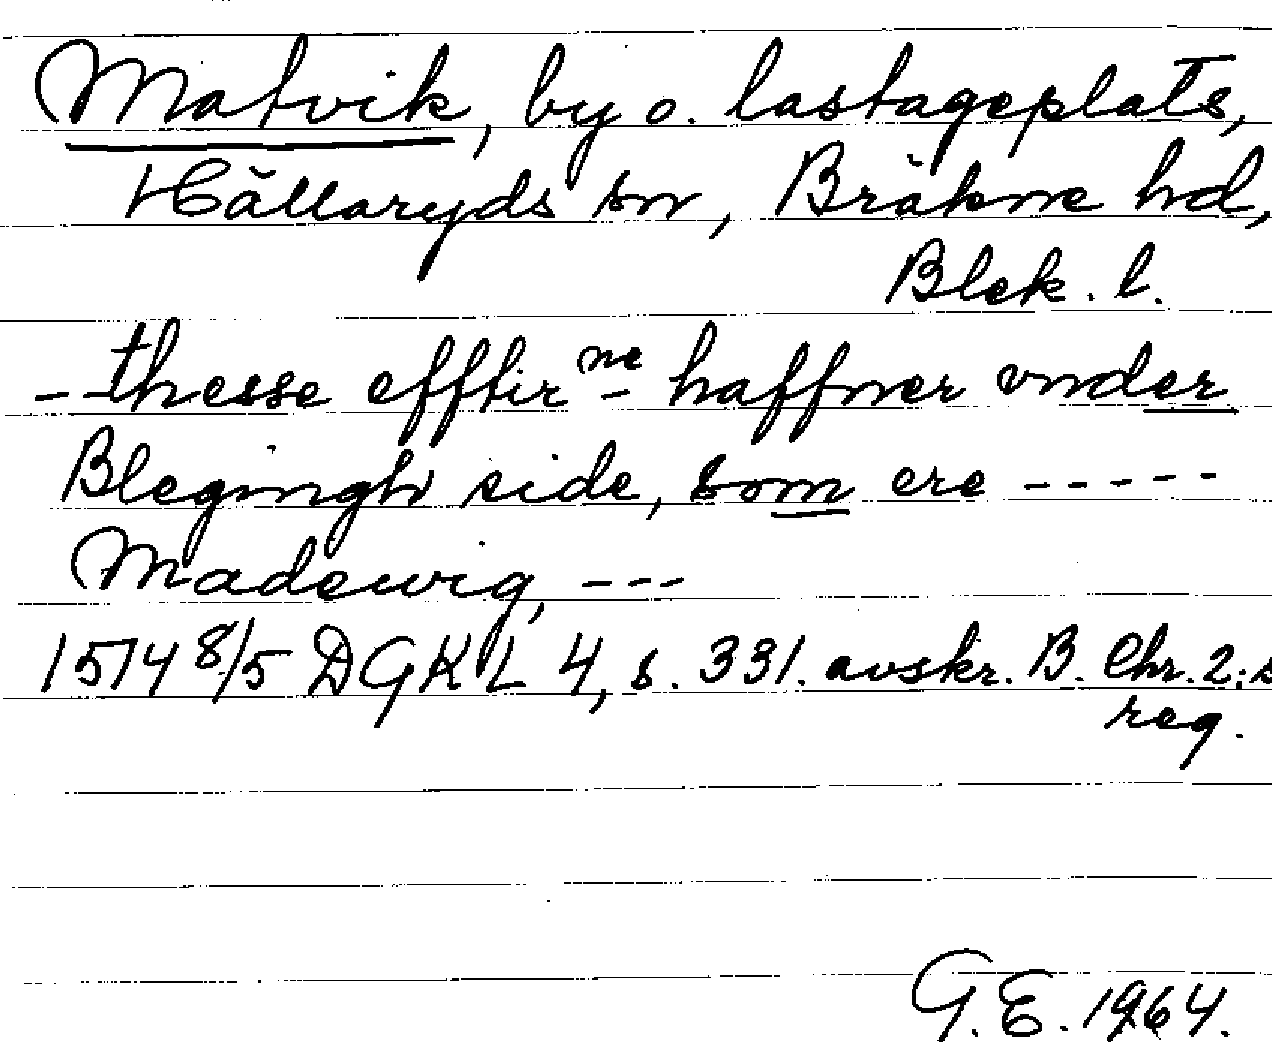 Matvik, by o. lastageplats,
Hällaryds sn, Bräkne hd,
Blek. l.
- - thesse efftir ne - haffner vnder
Blegingh side, som ere - - - - -
Madewig, - - -
1514 8/5 DGKL 4, s. 331. avskr. B. Chr. 2:s
reg.
G. E. 1964.